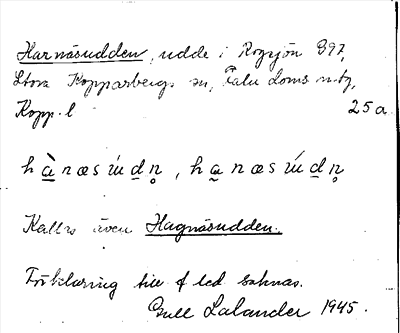 Harnäsudden, udde i Rogsjön 397,
Stora Kopparbergs sn, Falu doms. n. tg,
Kopp. l 25 a
Kallas även Hagnäsudden.
Förklaring till f led saknas.
Gull Lalander 1945.